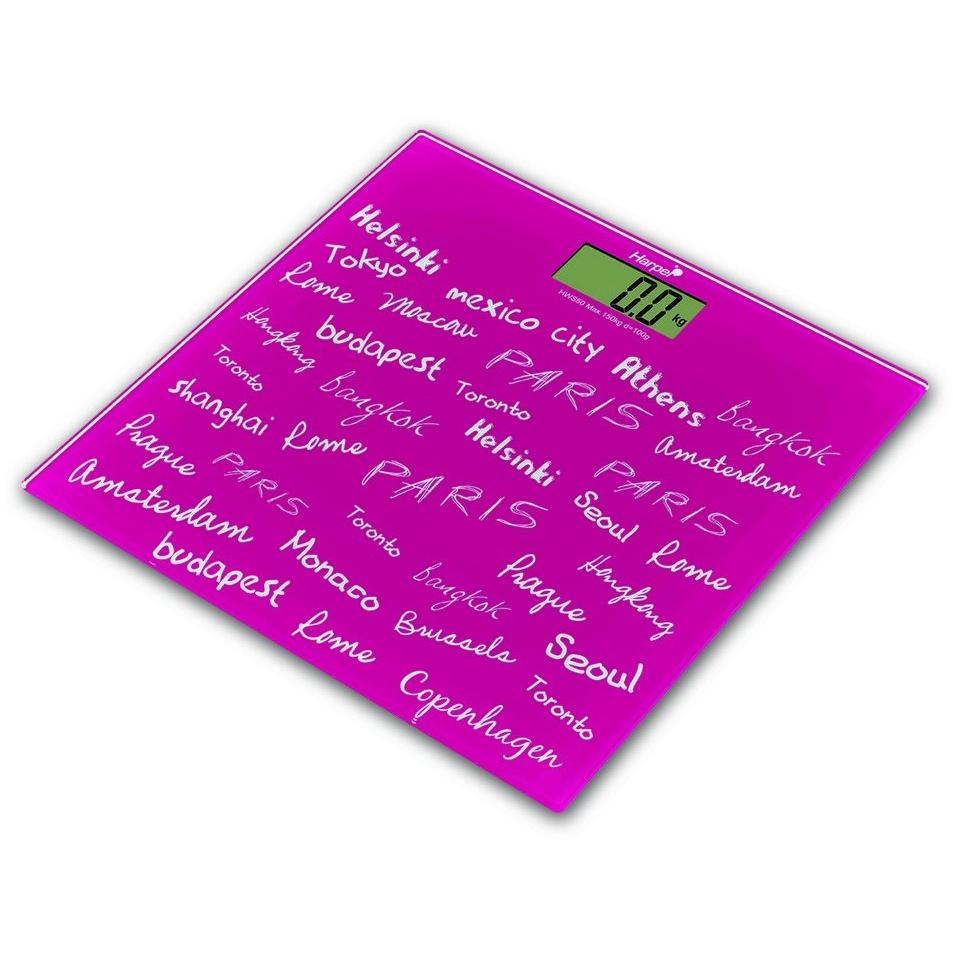 Harper
0.0 kg
HWS50 Max. 150kg d=100g
Helsinki
Tokyo
mexico city Athens Bangkok
Rome Moscow PARIS Amsterdam
budapest Toronto
Hongkong Bangkok Helsinki PARIS
Toronto
shanghai Rome PARIS Seoul Rome
Prague PARIS Toronto Prague Hongkong
Amsterdam Monaco Bangkok
budapest Brussels Seoul
Rome Toronto
Copenhagen